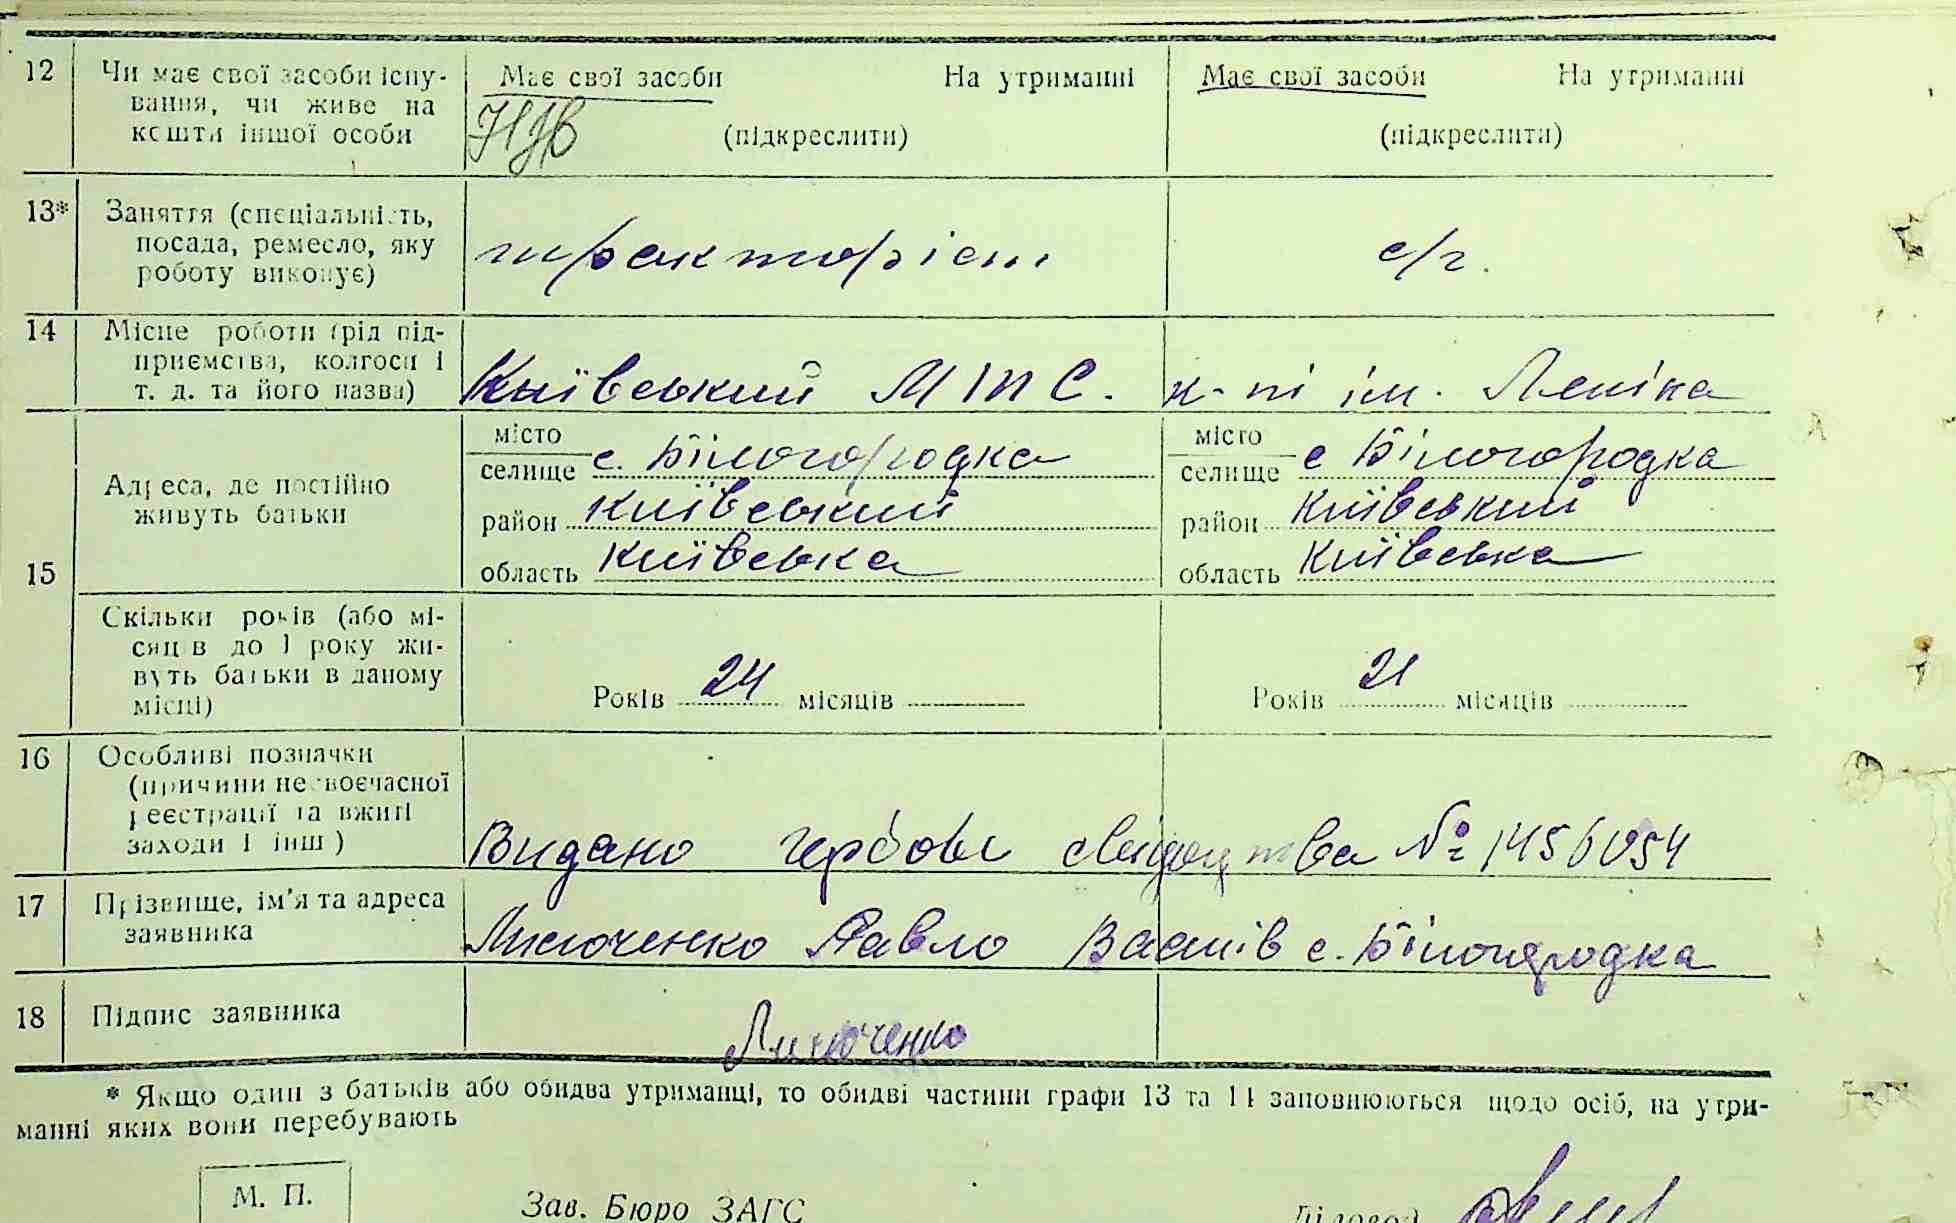 12 Чи має свої засоби існу-
вання, чи живе на
кошти іншої особи
Має свої засоби На утриманні
(підкреслити)
Має свої засоби На утриманні
(підкреслити)
13* Заняття (спеціальність,
посада, ремесло, яку
роботу виконує)
тракторіст
с/г.
14 Місце роботи (рід під-
приємства, колгосп і
т. д. та його назва)
Київський МТС.
к-пі ім. Леніна
15 Адреса, де постійно
живуть батьки
місто
селище с. Білогородка
район Київський
область Київська
місто
селище с Білогородка
район Київський
область Київська
Скільки років (або мі-
сяців до 1 року жи-
вуть батьки в даному
місці)
Років 24 місяців
Років 21 місяців
16 Особливі позначки
(причини несвоєчасної
реєстрації та вжиті
заходи і інш)
Видано гербове свідоцтва № 1456054
17 Прізвище, ім'я та адреса
заявника
Павло Василів с. Білогородка
18 Підпис заявника
* Якщо один з батьків або обидва утриманці, то обидві частини графи 13 та 14 заповнюються щодо осіб, на утри-
манні яких вони перебувають
М. П.
Зав. Бюро ЗАГС
Діловод